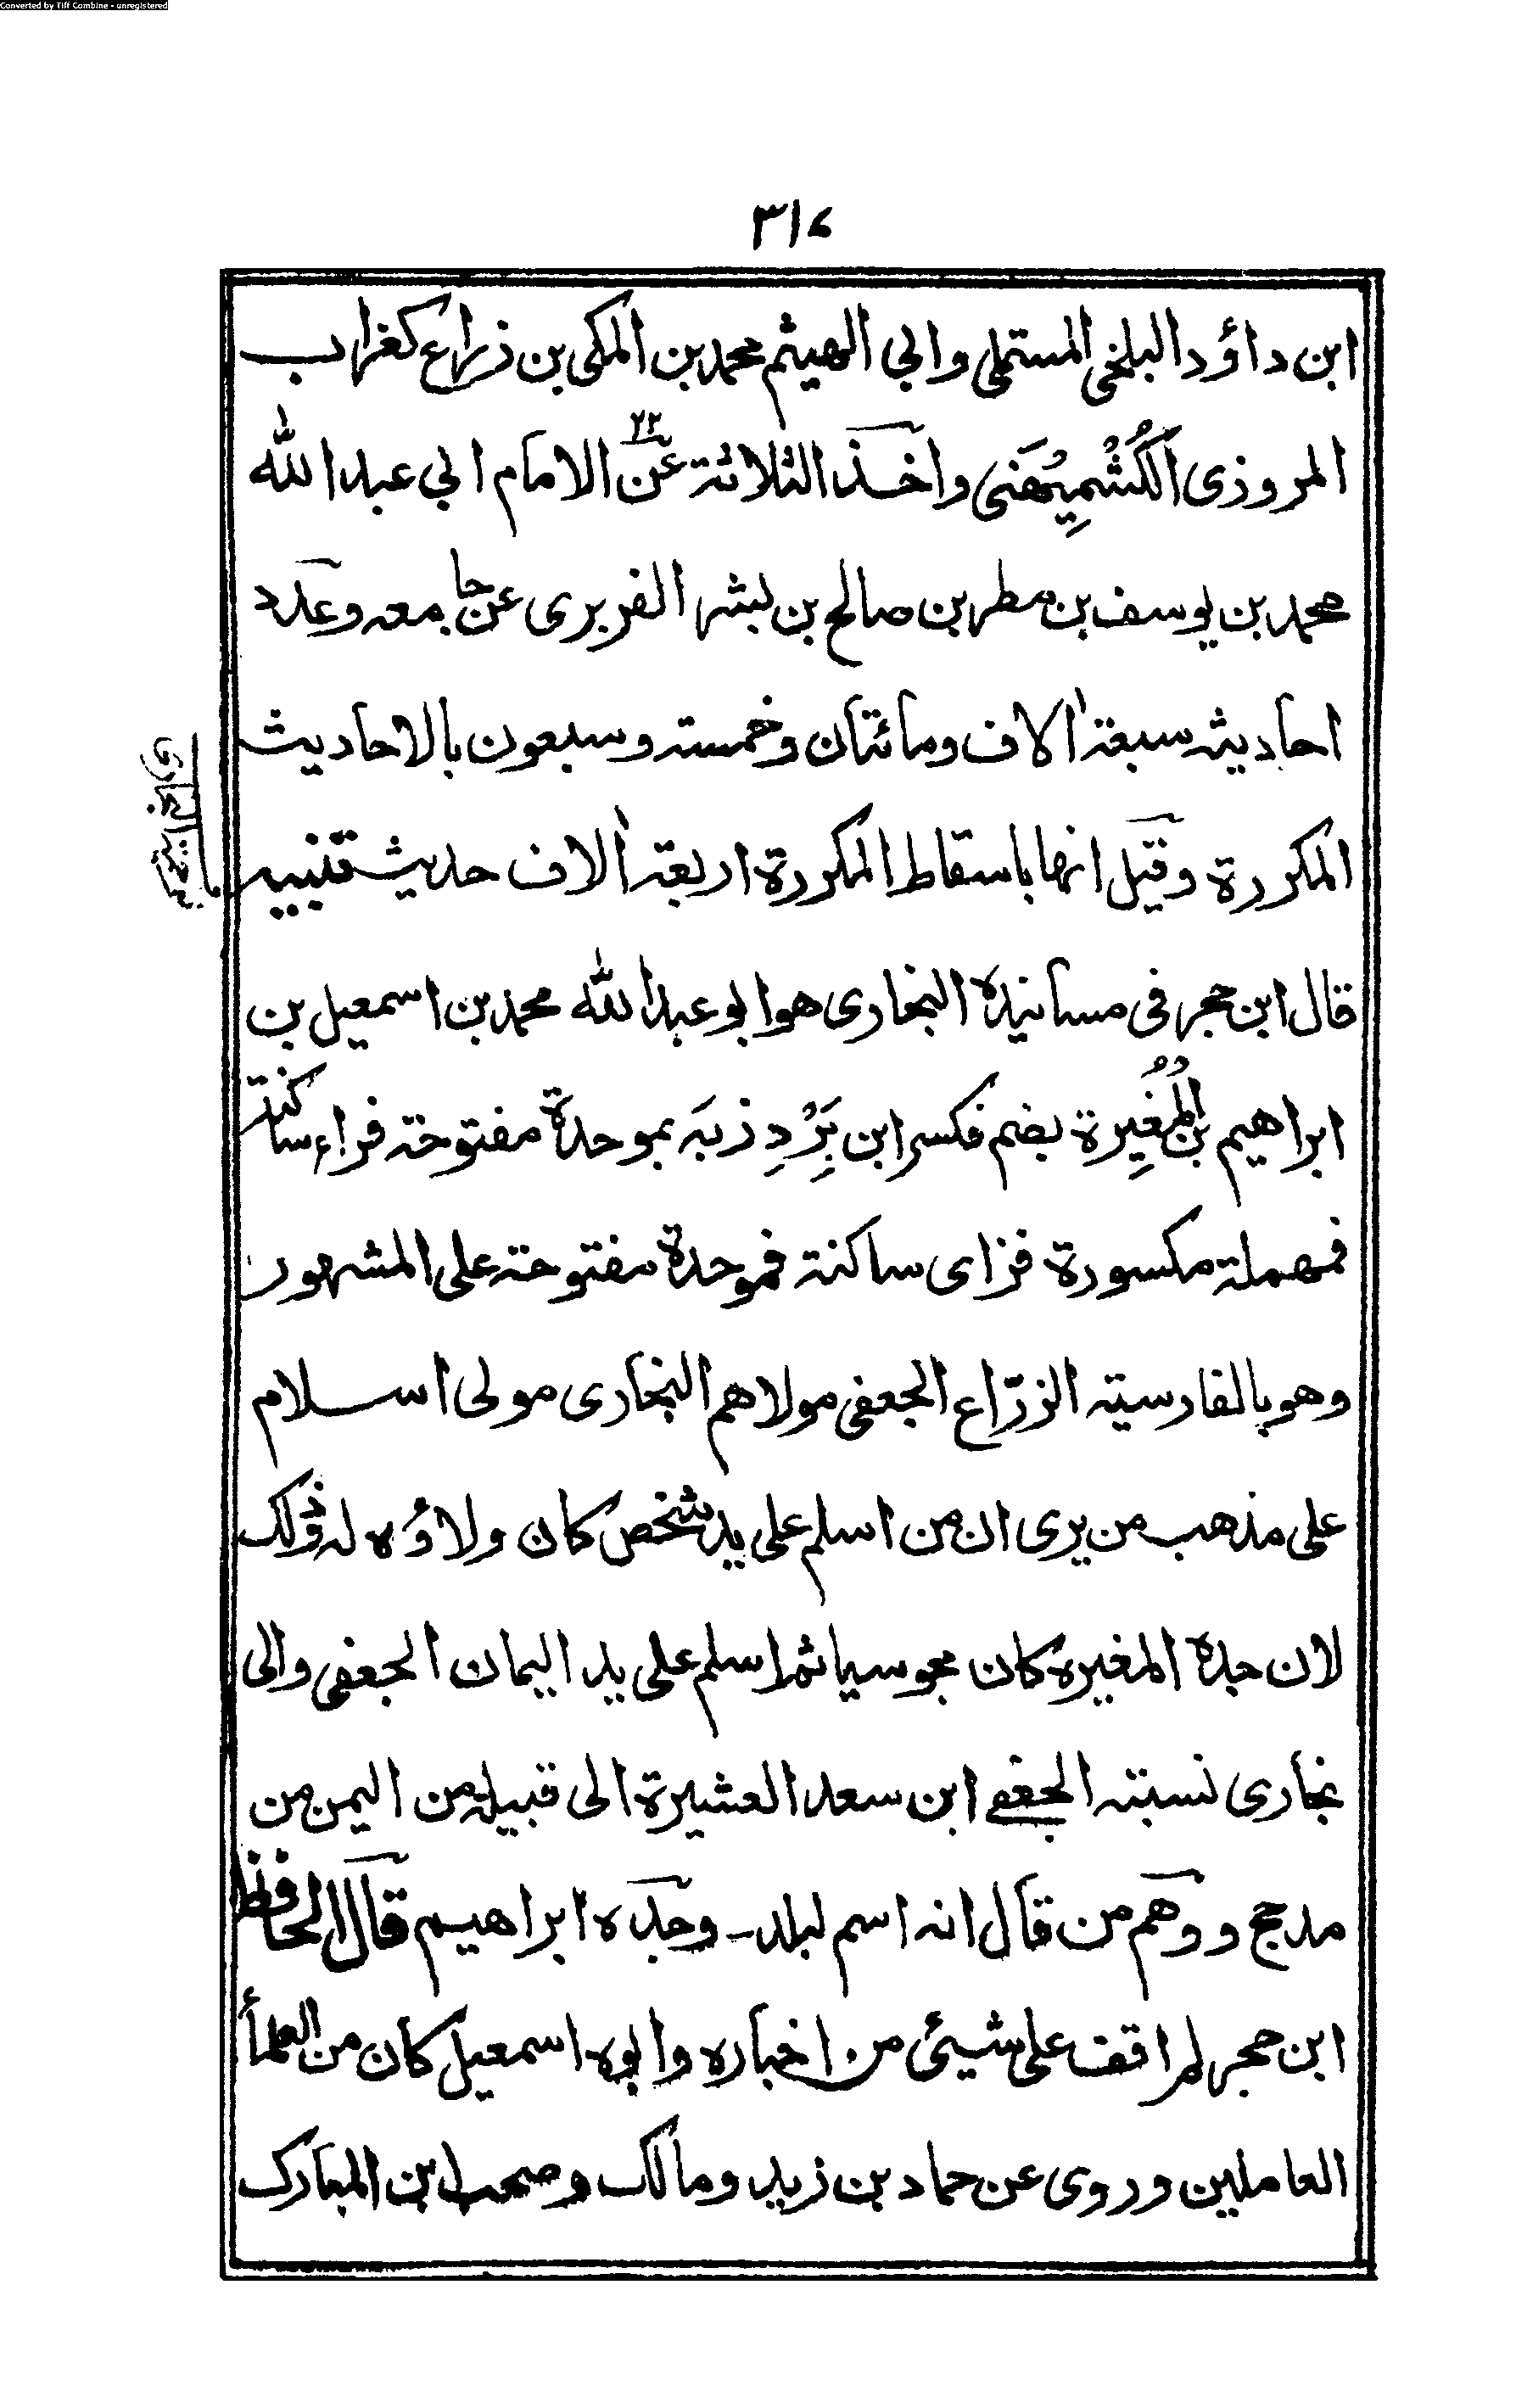 Converted by Tiff Combine - unregistered
٣١٤
ابن داؤد البلخي المستملي وابي الهيثم محمد بن المكي بن ذراع كغراب
المروذى الكُشْمِيهَنى واخذ الثلاثة عن ٢٢ الامام ابي عبد الله
محمد بن يوسف بن مطر بن صالح بن بشر الفربرى عن جامعه وعدد
احاديثه سبعة الاف ومائتان وخمسة وسبعون بالاحاديث
المكررة وقيل انها باسقاط المكررة اربعة الاف حديث تنبيه
ترجمة البخارى
قال ابن حجر فى مسانيده البخارى هو ابو عبد الله محمد بن اسمعيل بن
ابراهيم بن المُغِيرة بضم فكسر ابن بَرْدِزبَه بموحدة مفتوحة فراء ساكنة
فمهملة مكسورة فزاى ساكنة فموحدة مفتوحة على المشهور
وهو بالفارسية الزرّاع الجعفى مولاهم البخارى مولى اسلام
على مذهب من يرى ان من اسلم على يد شخص كان ولاؤه له وذلك
لان جده المغيرة كان مجوسيا ثم اسلم على يد اليمان الجعفى والى
بخارى نسبته الجعفے ابن سعد العشيرة الى قبيلة من اليمن من
مدحج ووهم من قال انه اسم لبلد۔ وجده ابراهيم قال الحافظ
ابن حجر لم اقف على شيئى من اخباره وابوه اسمعيل كان من العلمأ
العاملين وروى عن حماد بن زيد ومالك وصحب ابن المبارك